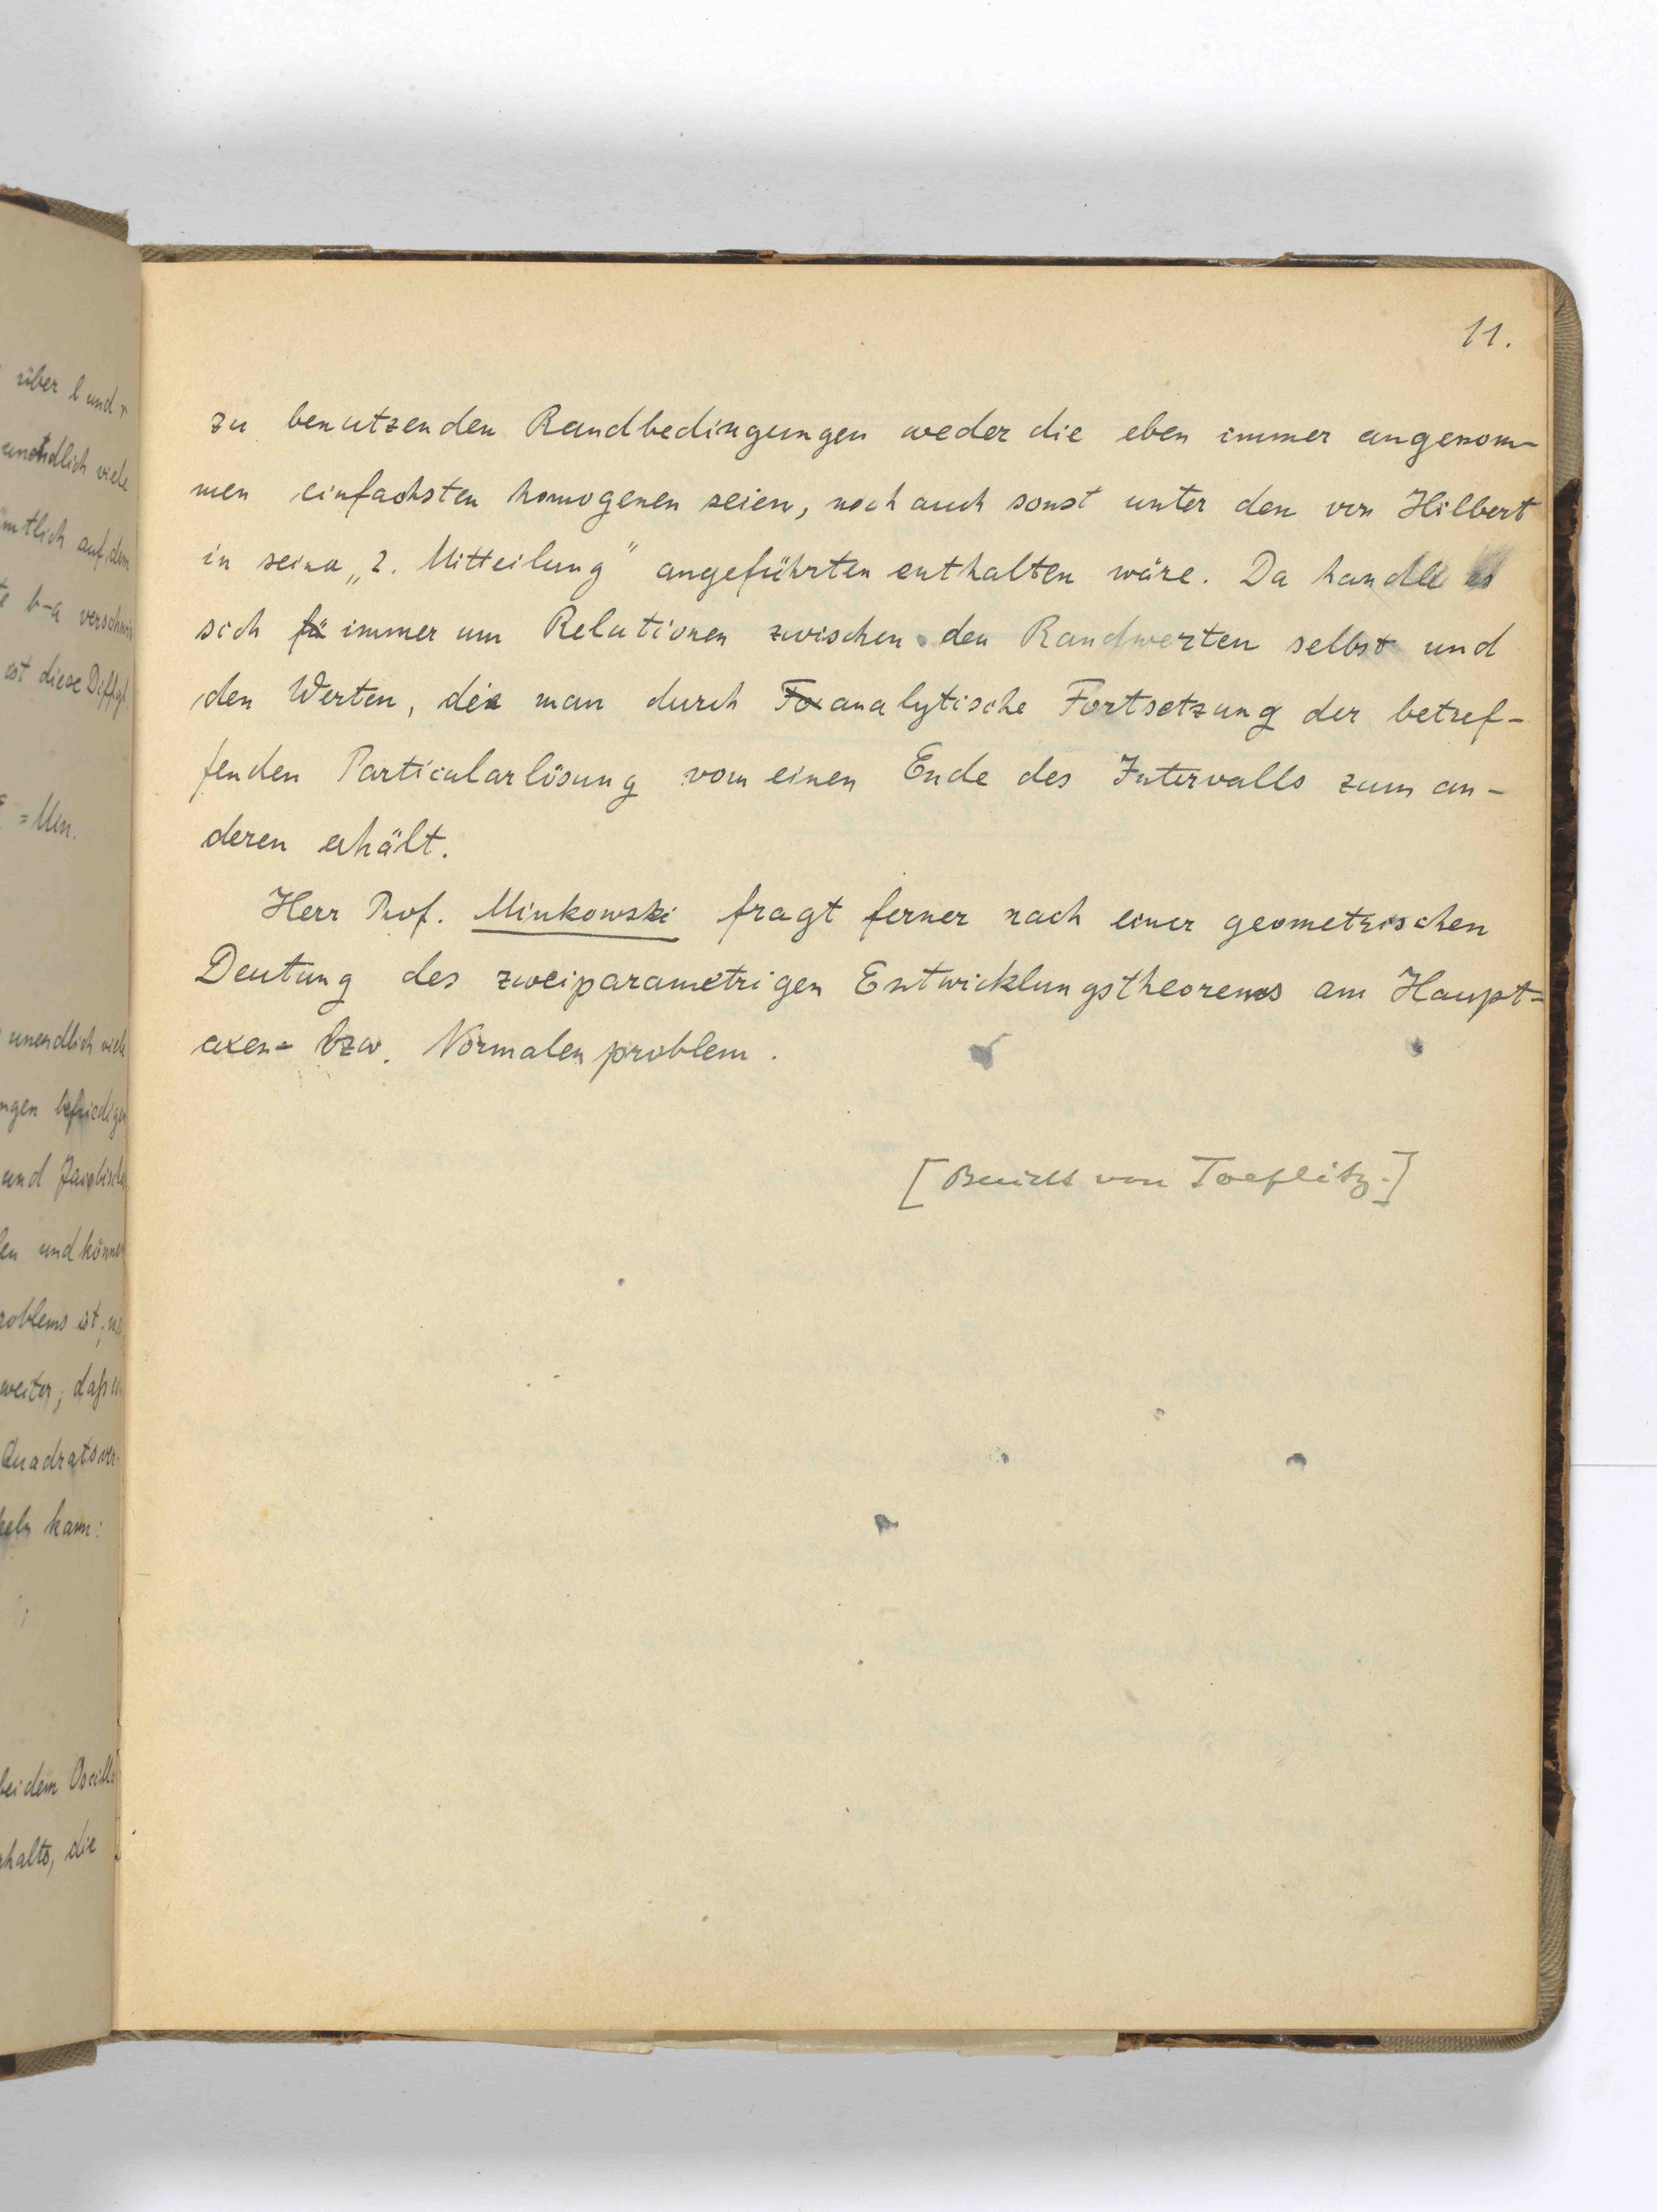 über l und r
unendlich viele
mtlich auf dem
te b-a verschwin
ist diese Diffgl.
= Min.
unendlich viele
ngen befriedigen
und Jacobische
len und können
roblems ist,
weiter, daß
Quadrats ver-
keln kann:
bei dem Oscill
rhalts, die
11.
zu benutzenden Randbedingungen weder die eben immer angenom-
men einfachsten homogenen seien, noch auch sonst unter den von Hilbert
in seiner „2. Mitteilung" angeführten enthalten wäre. Da handle es
sich fü immer um Relationen zwischen den Randwerten selbst und
den Werten, die man durch Fo analytische Fortsetzung der betref-
fenden Particularlösung vom einen Ende des Intervalls zum an-
deren erhält.
Herr Prof. Minkowski fragt ferner nach einer geometrischen
Deutung des zweiparametrigen Entwicklungstheorems am Haupt-
axen- bzw. Normalenproblem.
[Bericht von Toeplitz.]